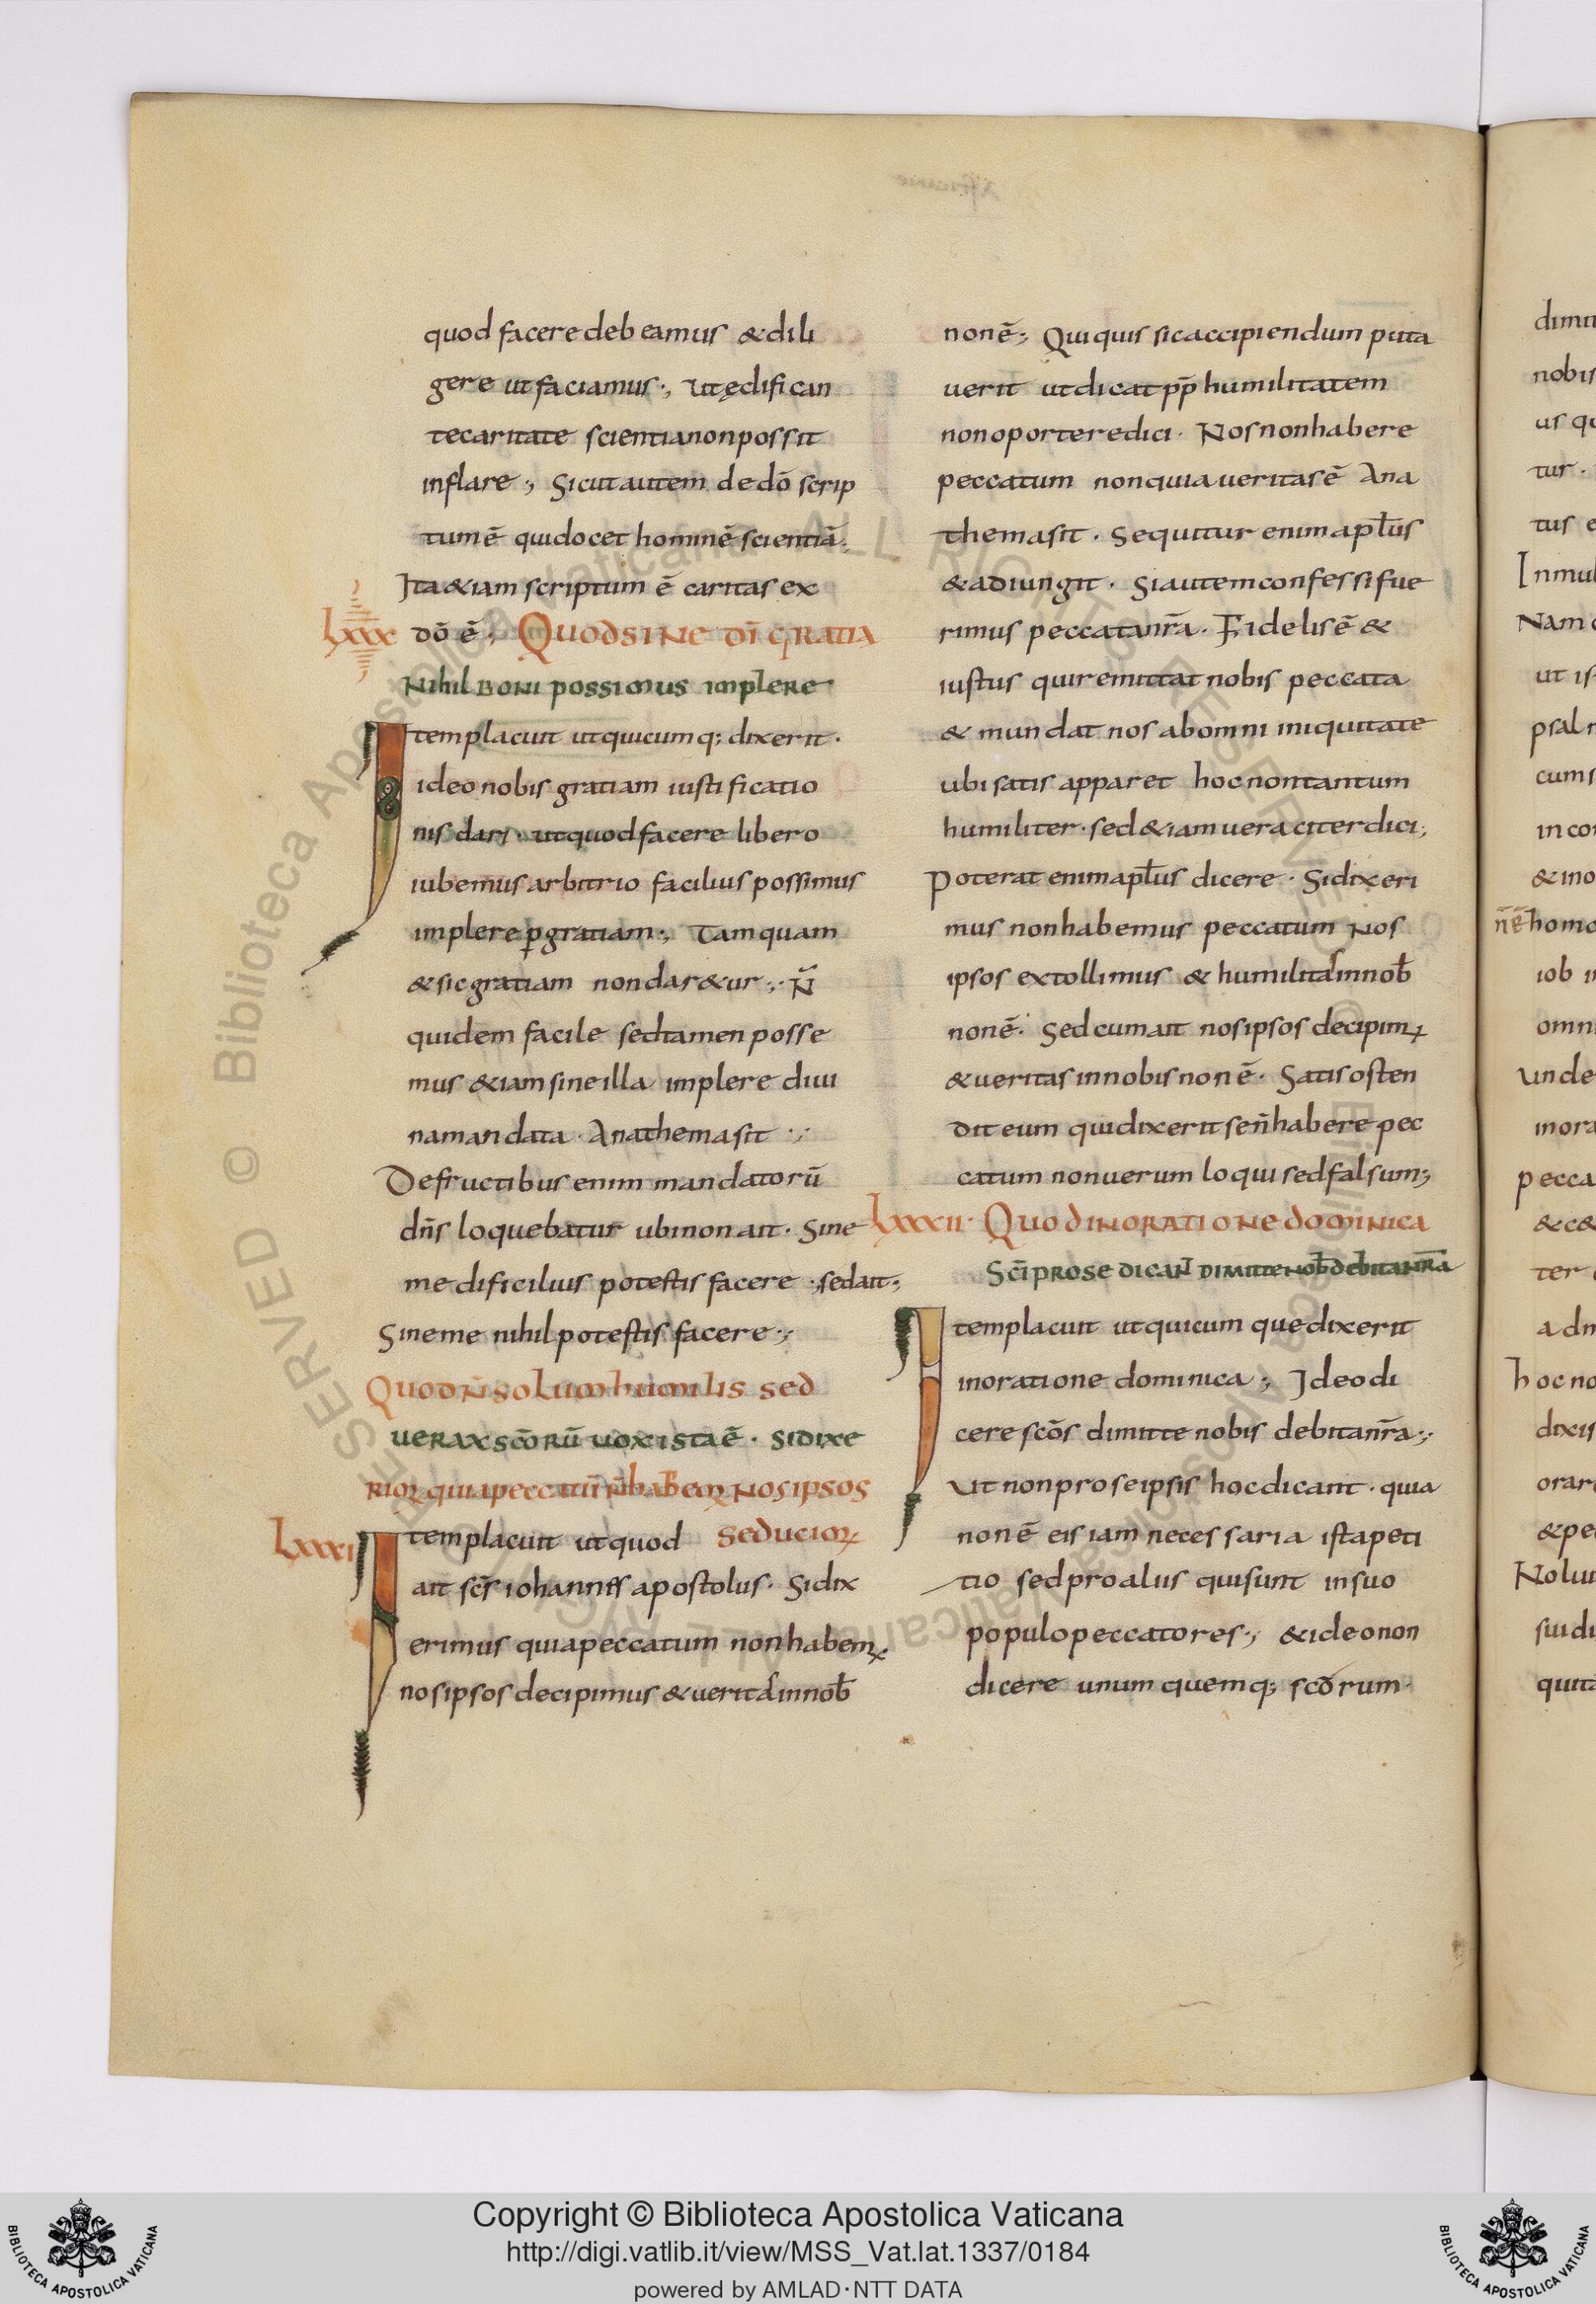 quod facere debeamus & dili
gere ut faciamus·, Ut ędifican
te caritate scientia non possit
inflare·, Sicut autem de dō scrip
tum ē qui docet hominē scientiā·,
Ita &iam scriptum ē caritas ex
Lxxx dō ē·, Quod sine dī gratia
nihil boni possimus implere
Item placuit ut quicumq; dixerit·
ideo nobis gratiam iustificatio
nis dari· ut quod facere libero
iubemus arbitrio facilius possimus
implere ꝑ gratiam·, Tamquam
& sic gratiam non dar&ur·,· n̄
quidem facile sed tamen posse
mus &iam sine illa implere diui
na mandata· Anathema sit·,·
De fructibus enim mandatorū
dn̄s loquebatur ubi non ait· Sine
me dificilius potestis facere·, sed ait·,
Sine me nihil potestis facere·,·
Quod n̄ solum humilis sed
uerax scōrū uox ista ē· si dixe
rimꝰ quia peccatū n̄ habemꝰ nos ipsos
seducimꝰ
Lxxxi Item placuit ut quod
ait scs̄ iohannes apostolus· Si dix
erimus quia peccatum non habemꝰ
nos ipsos decipimus & ueritas in nob̄
non ē·, Quiquis sic accipiendum puta
uerit ut dicat pp̄ humilitatem
non oportere dici· Nos non habere
peccatum non quia ueritas ē Ana
thema sit· Sequitur enim apl̄us
& adiungit· Si autem confessi fue
rimus peccata nr̄a· Fidelis ē &
iustus qui remittat nobis peccata
& mundat nos ab omni iniquitate
ubi satis apparet hoc non tantum
humiliter· sed &iam ueraciter dici·,
Poterat enim apl̄us dicere· Si dixeri
mus non habemus peccatum nos
ipsos extollimus & humilitas in nob̄
non ē· Sed cum ait nos ipsos decipimꝰ
& ueritas in nobis non ē· Satis osten
dit eum qui dixerit se n̄ habere pec
catum non uerum loqui sed falsum·,
Lxxxii· Quod in oratione dominica
Scī pro se dicant dimitte nob̄ debita nr̄a
Item placuit ut quicumque dixerit
in oratione dominica·, Ideo di
cere scōs dimitte nobis debita nr̄a·,·
Ut non pro se ipsis hoc dicant· quia
non ē eis iam necessaria ista peti
tio sed pro aliis qui sunt in suo
populo peccatores·, & ideo non
dicere unum quemq; scōrum·
dimit
nobis
us qu
tur·
tus e
Inmul
Nam
ut is
psal
cum s
in con
& ino
n̄ē homo
iob in
omni
unde
inora
pecca
&c&
ter
adm
hoc no
dixis
orar
& pe
Nolu
sui di
quita
Copyright © Biblioteca Apostolica Vaticana
http://digi.vatlib.it/view/MSS_Vat.lat.1337/0184
powered by AMLAD·NTT DATA
BIBLIOTECA APOSTOLICA VATICANA
BIBLIOTECA APOSTOLICA VATICANA